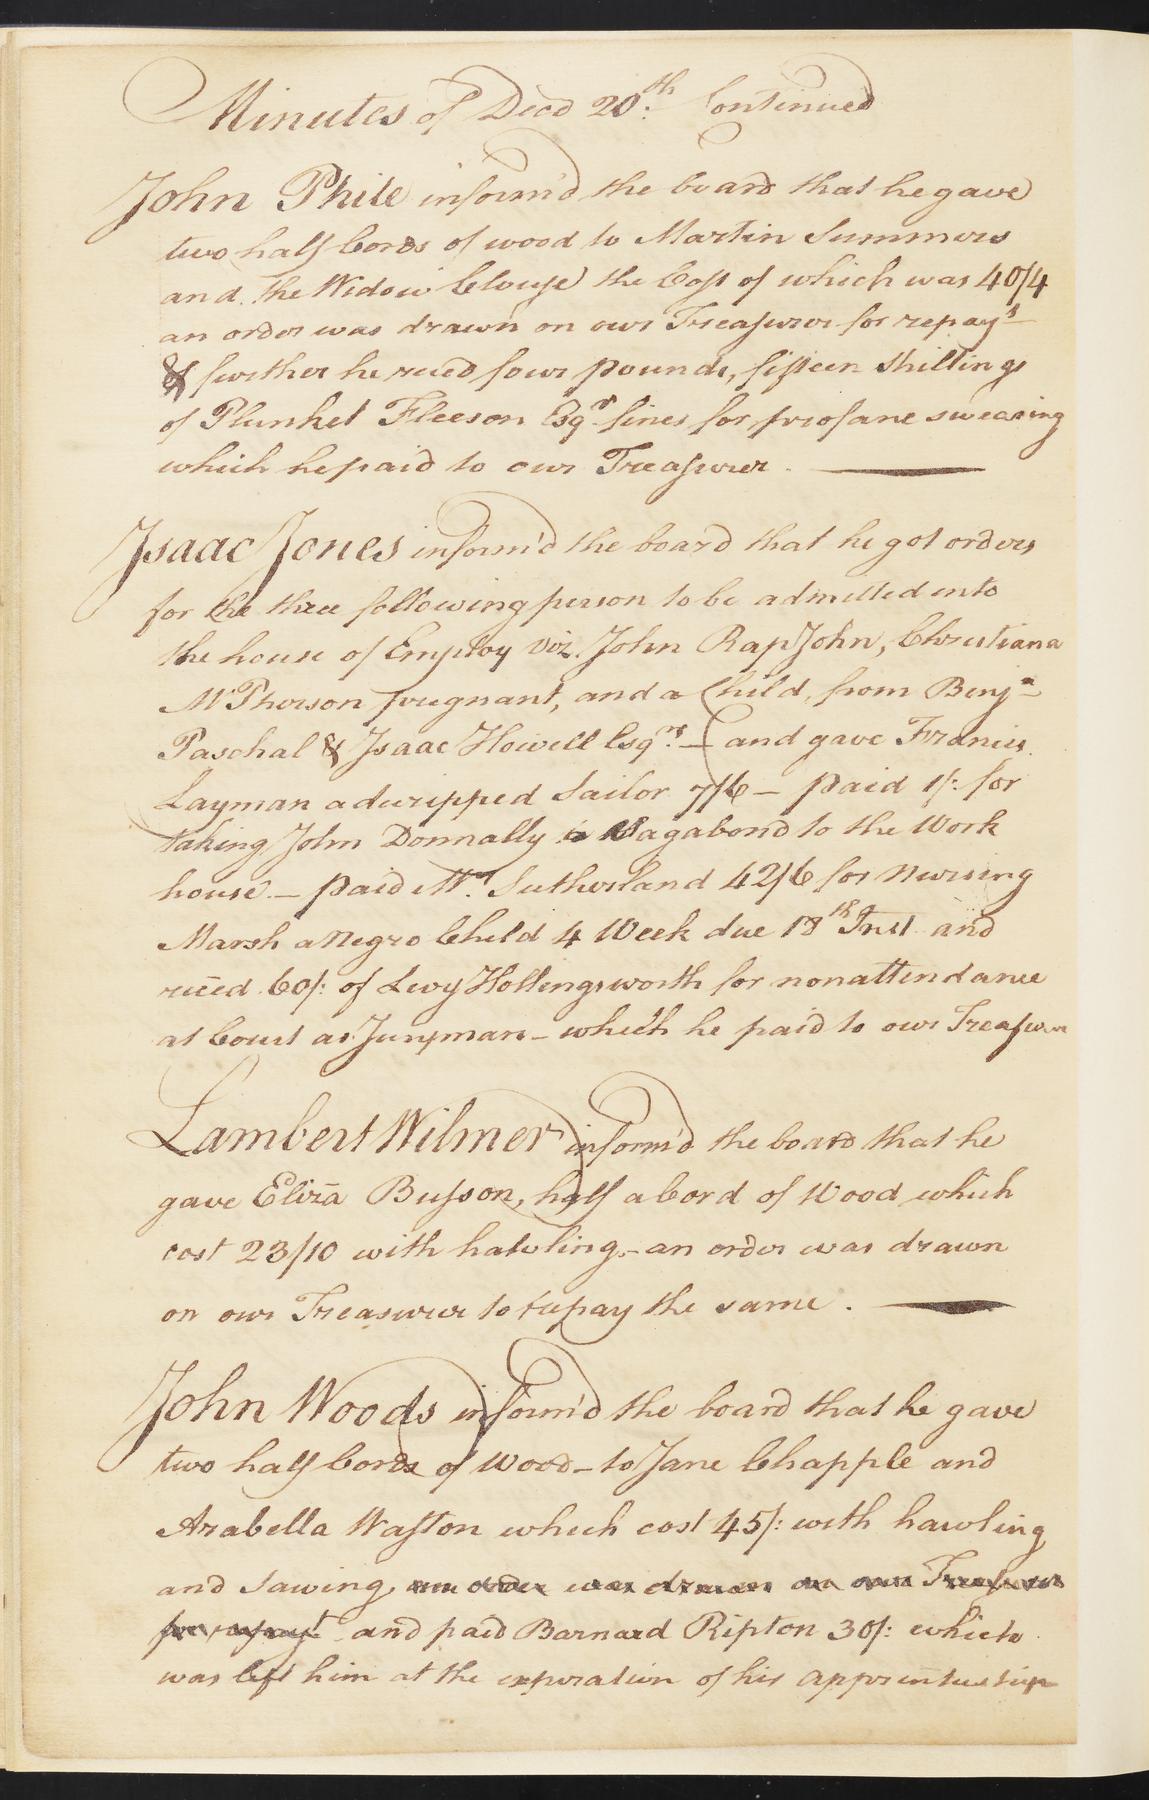 Minutes of Decd 20th: Continued
John Phile inform'd the board that he gave
two half Cords of wood to Martin Summers
and the Widow Clouse the Cost of which was 40/4
an order was drawn on our Treasurer for repayt
& further he recd four pounds, fifteen Shillings
of Plunket Fleeson Esqr fines for profane swearing
which he paid to our Treasurer.
Isaac Jones inform'd the board that he got orders
for the three following person to be admitted into
the house of Employ viz. John RapJohn, Christiana
McPherson pregnant, and a Child, from Benja
Paschal & Isaac Howell Esqrs. — and gave Francis
Layman a decripped Sailor 7/6 — paid 1/: for
taking John Donnally a Vagabond to the Work
house — paid Mrs Sutherland 42/6 for Nursing
Marsh a Negro Child 4 Week due 18th Inst and
recd 60/: of Levy Hollingsworth for nonattendance
at Court as Juryman — which he paid to our Treasurer
Lambert Wilmer inform'd the board that he
gave Eliza Busson, half a Cord of Wood which
cost 23/10 with hawling — an order was drawn
on our Treasurer to repay the same.
John Woods inform'd the board that he gave
two half Cords of Wood — to Jane Chapple and
Arabella Waston which cost 45/: with hawling
and Sawing, an order was drawn on our Treasurer
for repayt and paid Barnard Ripton 30/: which
was left him at the expiration of his apprintiship